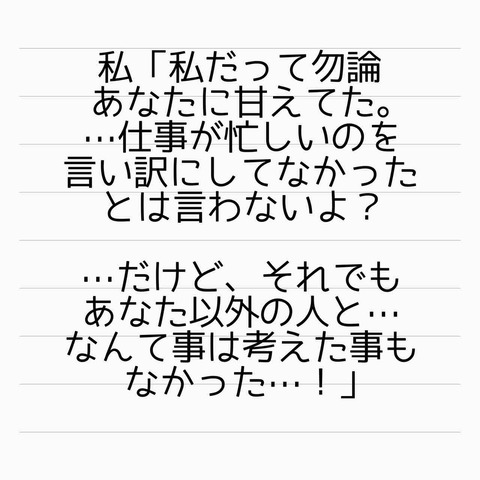 私「私だって勿論
あなたに甘えてた。
…仕事が忙しいのを
言い訳にしてなかった
とは言わないよ？
…だけど、それでも
あなた以外の人と…
なんて事は考えた事も
なかった…！」